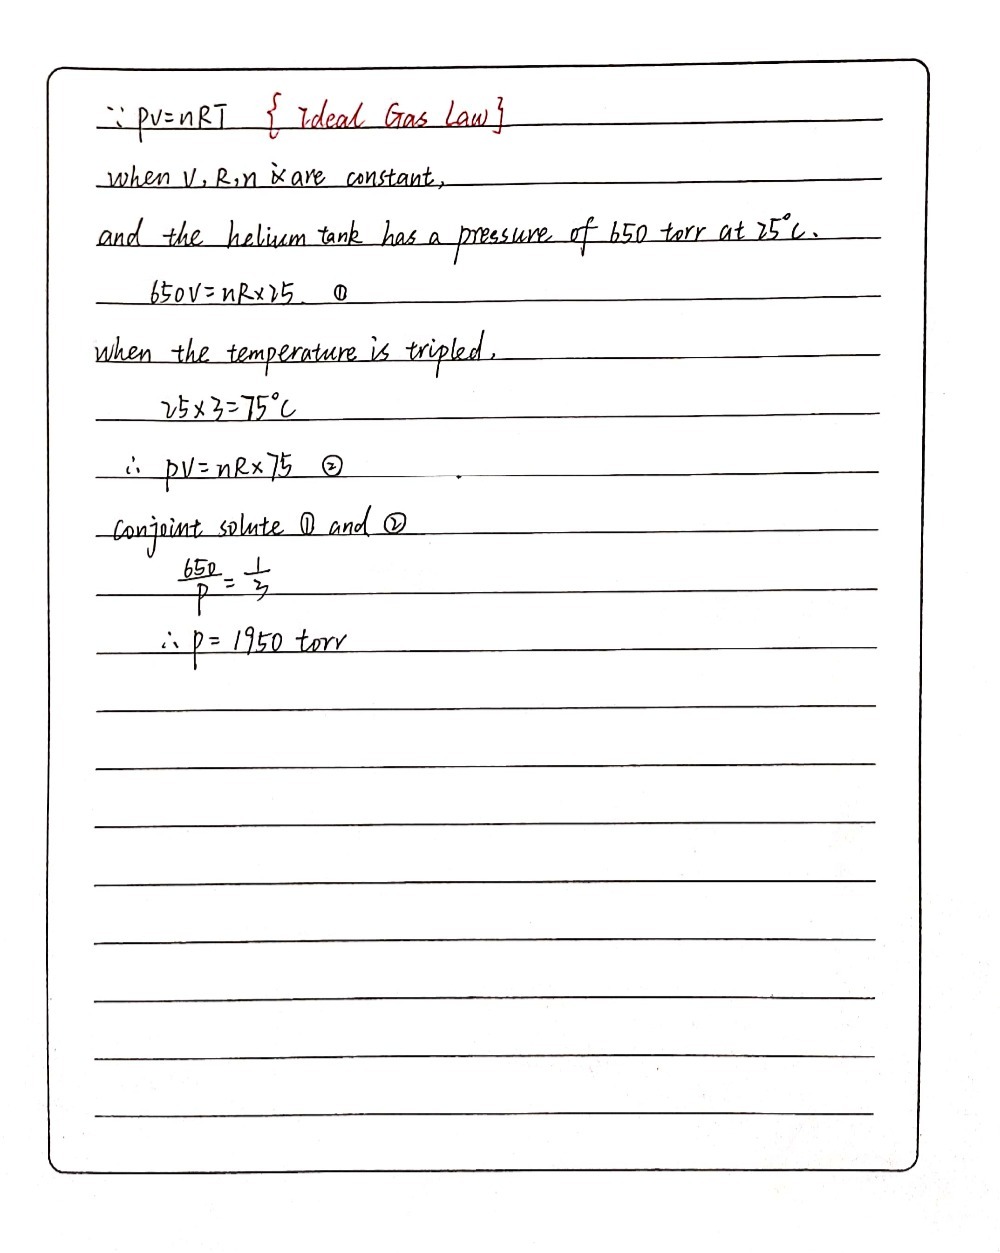 ∵ PV=nRT { Ideal Gas Law}
when V, R, n are constant,
and the helium tank has a pressure of 650 torr at 25°C.
650V=nR×25 ①
when the temperature is tripled,
25×3=75°C
∴ PV=nR×75 ②
Conjoint solute ① and ②
650/P = 1/3
∴ P= 1950 torr